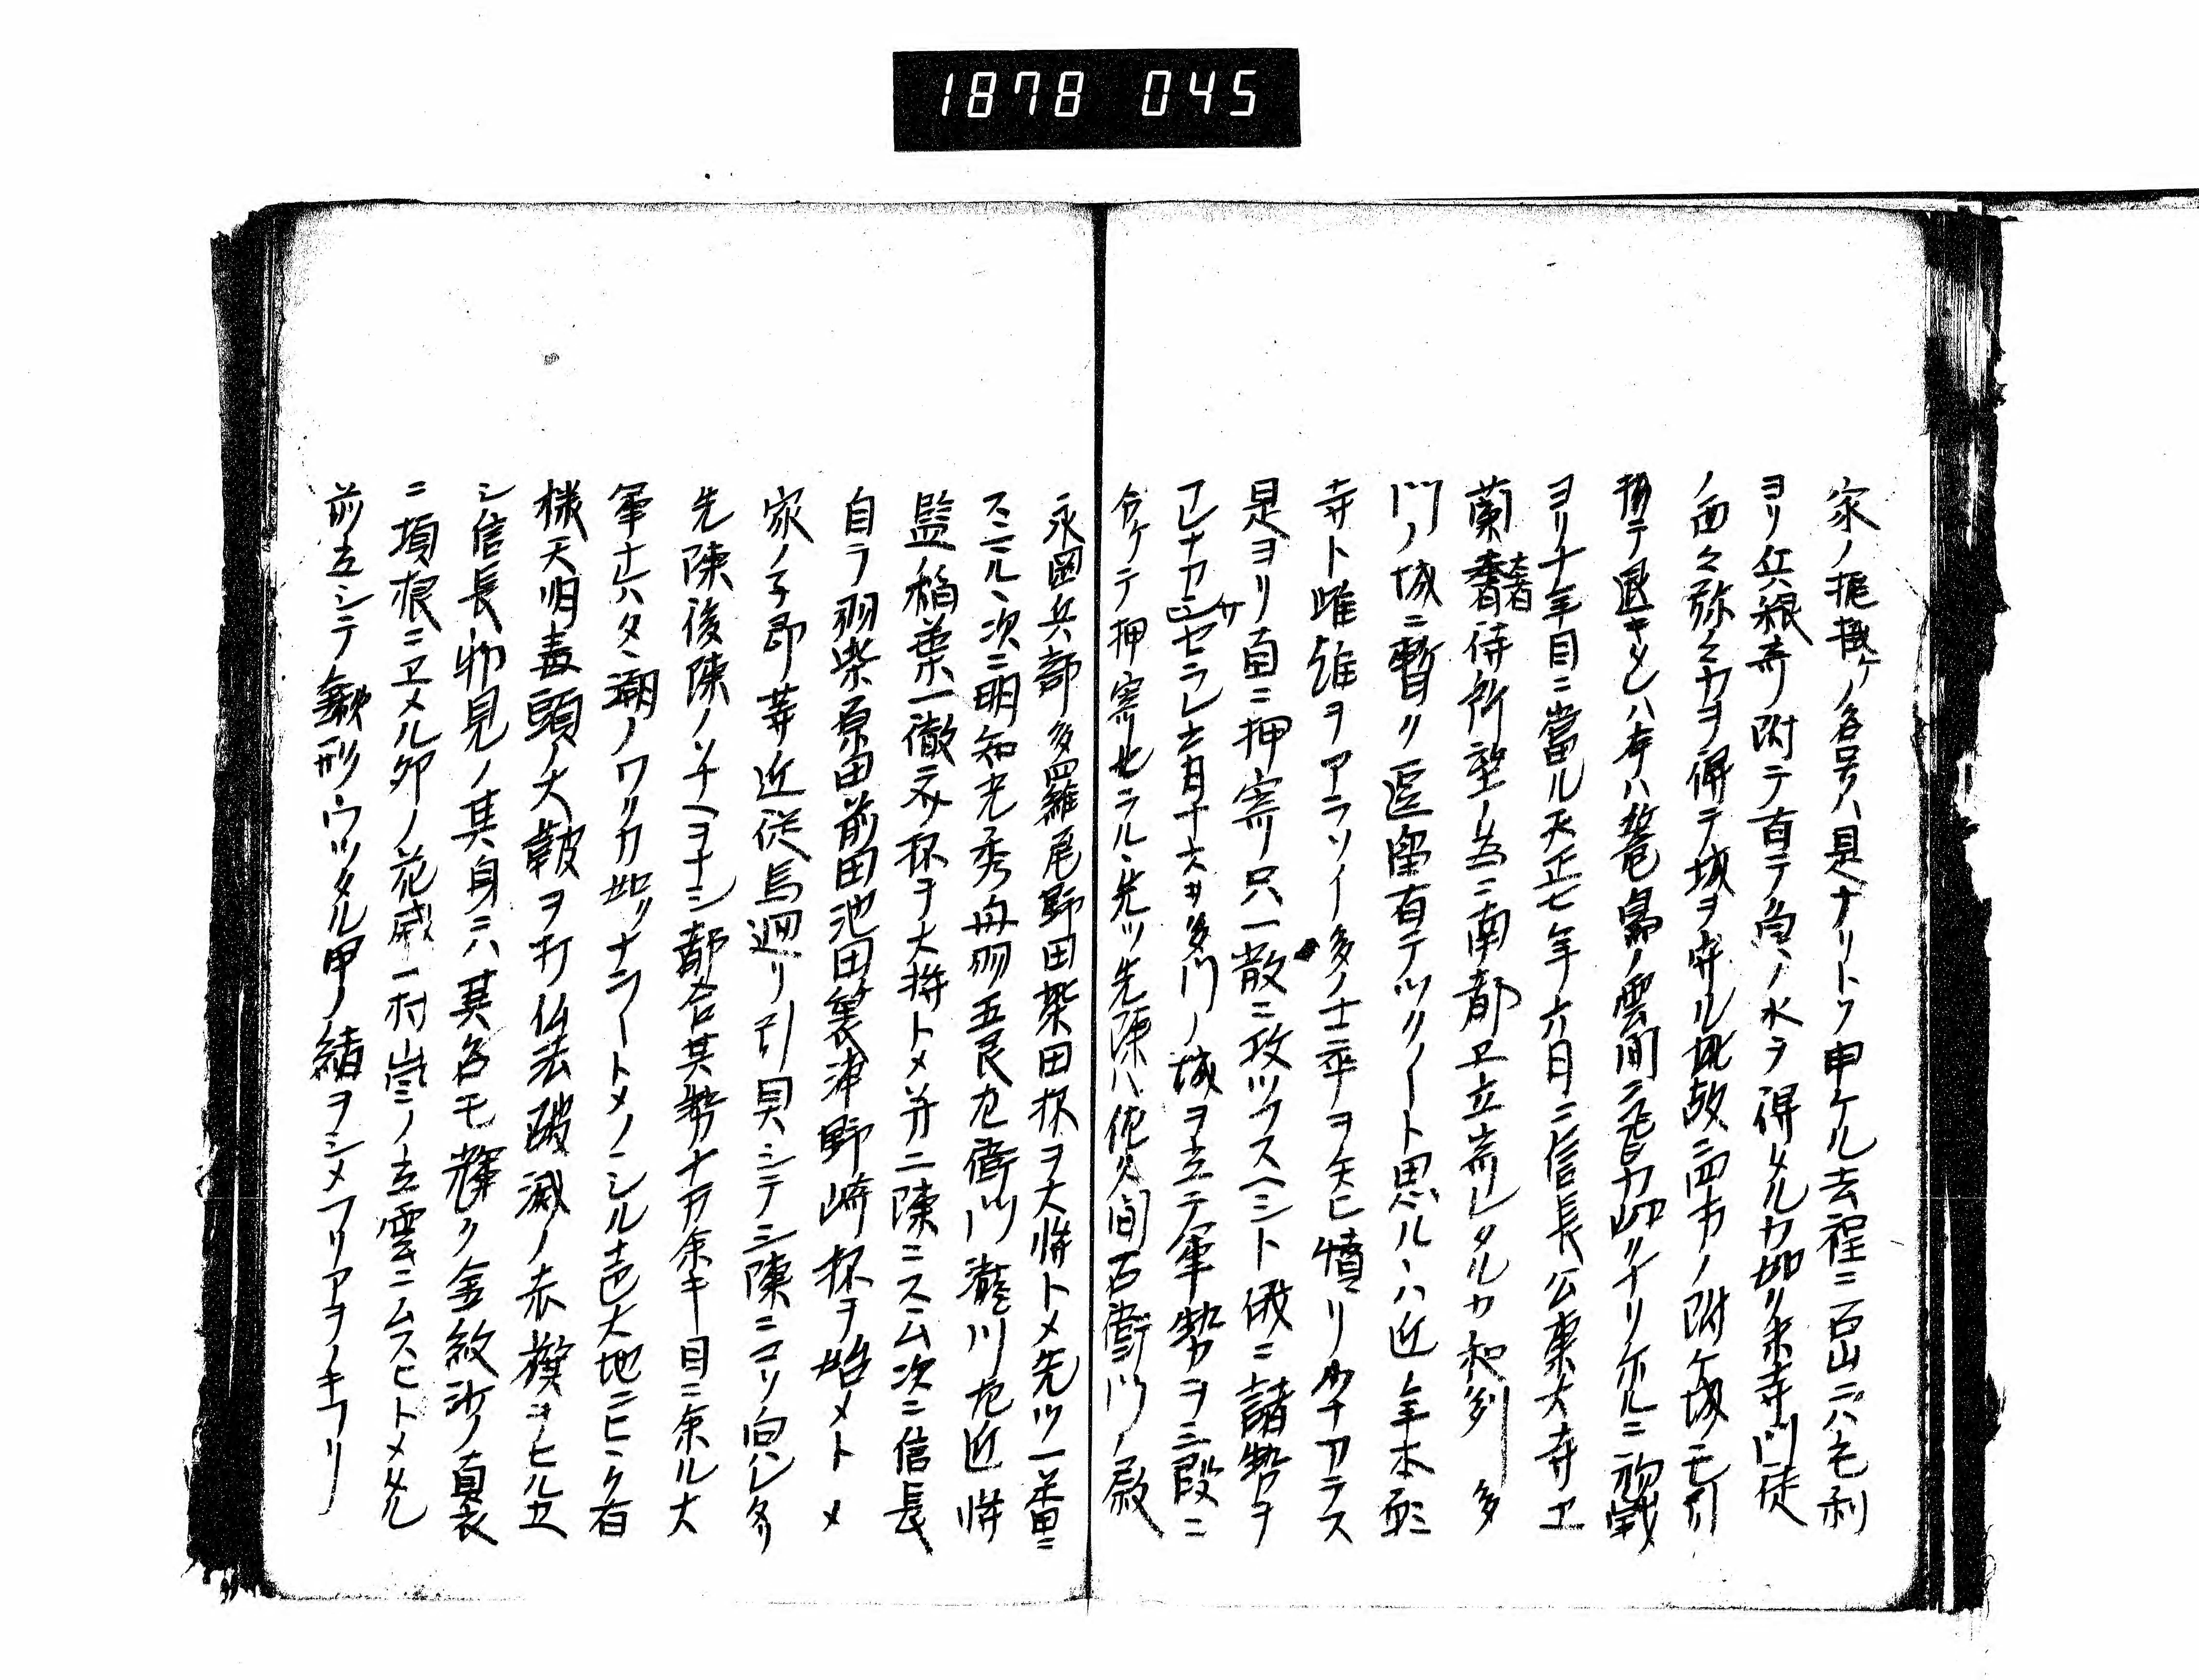 1878 045
家ノ掟掛ケノ各号ハ是ナリトソ申ケル去程ニ石山ニハ毛利
ヨリ兵粮寄リ附テ百テ魚ノ水ヲ得メルカ如リ本寺門徒
ノ面々弥々力ヲ得テ城ヲ守ル此故ニ四方ノ附ケ城モ引
捨テ退キメレハ本ハ篭鳥ノ雲間ニ カ如クナリケルニ初戦
ヨリ十年目ニ當ル天正七年六月ニ信長公東大寺エ
蘭奢待所望ノ為ニ南都エ立寄レタルカ和列多
門ノ城ニ暫ク逗留有テツクノート思ルヽハ近年本願
寺ト雌雄ヲアラソイ多ノ士卒ヲ矢ヒ憤リ少ナカラス
是ヨリ直ニ押寄リ只一散ニ攻ツフスヘシト俄ニ諸勢ヲ
 セラレ六月十六日多門ノ城ヲ立テ軍勢ヲ三段ニ
分ケテ押寄セラルヽ先ツ先陳ハ佐久間右衛門ノ尉
永岡兵部多羅尾野田柴田抔ヲ大将トメ先ツ一番ニ
スヽル次ニ明知光秀丹羽五良左衛門瀧川左近将
監稲葉一徹 抔ヲ大将トメ并ニ二陳ニスヽム次ニ信長
自ラ羽柴原田前田池田蓑津野崎抔ヲ始メトメ
家ノ子郎等近従馬廻リ引具シテ三陳ニコリ向ハレタリ
先陳後陳ノソナヘヲナシ都合其勢十万余キ目ニ余ル大
軍ナレハタヽ潮ノワリカ如クナラートメノシル声大地ニヒヽク有
様天明毒頭ノ大鼓ヲ打仏法破滅ノ赤旗ヲヒルエ
シ信長物見ノ其身ニハ其名モ輝ク金紋沙ノ直衣
ニ項根ニヱメル卯ノ花威一村嵐ノ立雲ニムスヒトメメル
前立シテ鍬形ウツタル甲ノ緒ヲシメフリアヲノキフリ